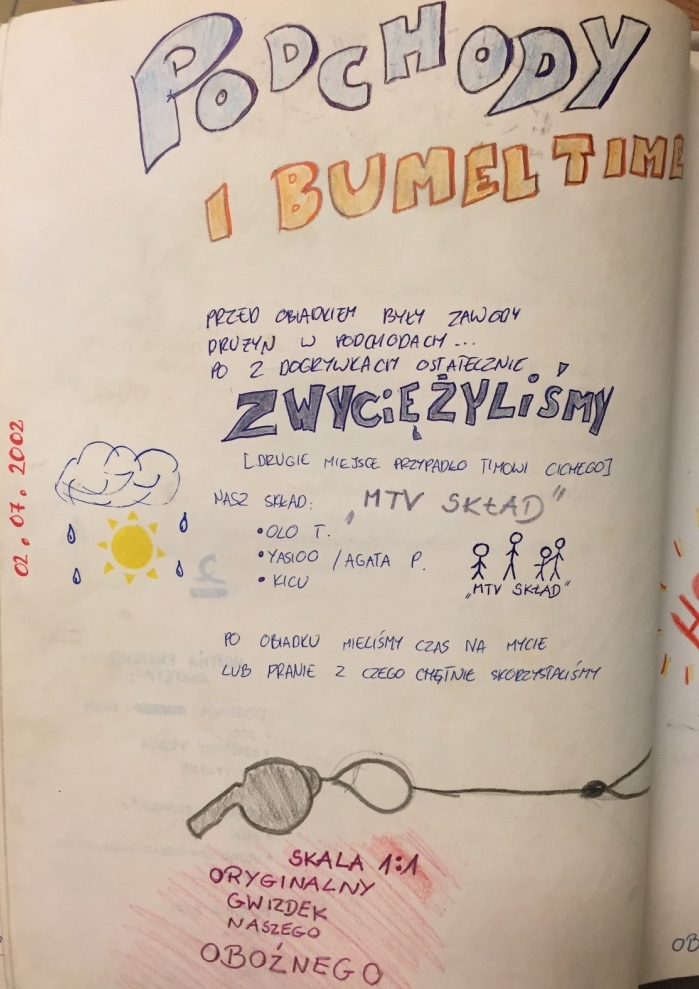 PODCHODY
I BUMEL TIME
PRZED OBIADKIEM BYŁY ZAWODY
DRUŻYN W PODCHODACH...
PO 2 DOGRYWKACH OSTATECZNIE
ZWYCIĘŻYLIŚMY
[DRUGIE MIEJSCE PRZYPADŁO TIMOWI CICHEGO]
02.07.2002
NASZ SKŁAD: „MTV SKŁAD"
• OLO T.
• YASIOO / AGATA P.
• KICU
„MTV SKŁAD"
PO OBIADKU MIELIŚMY CZAS NA MYCIE
LUB PRANIE Z CZEGO CHĘTNIE SKORZYSTALIŚMY
SKALA 1:1
ORYGINALNY
GWIZDEK
NASZEGO
OBOŹNEGO
OB